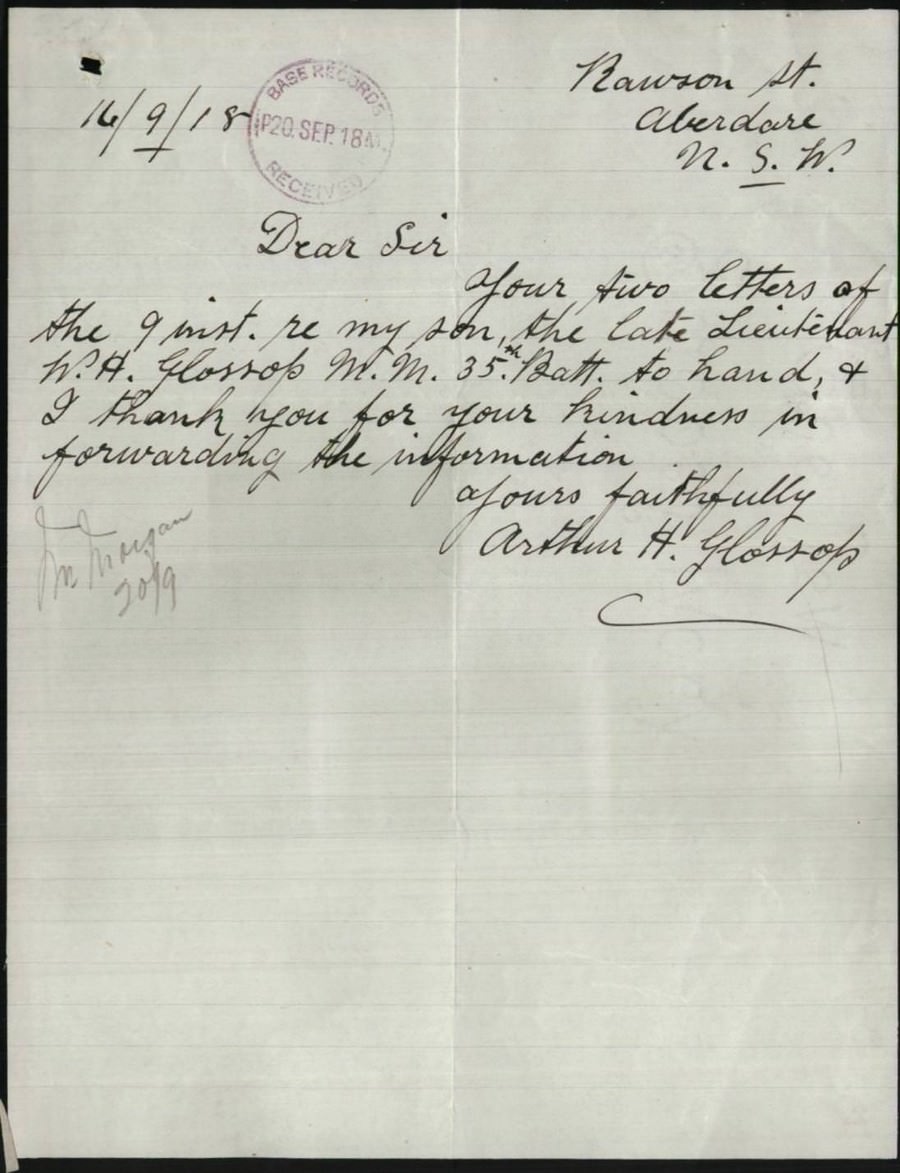 Rawson St.
Aberdare
N. S. W.
16/9/18
BASE RECORDS
P20. SEP. 18
RECEIVED
Dear Sir
Your two letters of
the 9 inst. re my son, the late Lieutenant
W. H. Glossop M. M. 35th. Batt. to hand, &
I thank you for your kindness in
forwarding the information
Yours faithfully
Arthur H. Glossop
Morgan
20/9